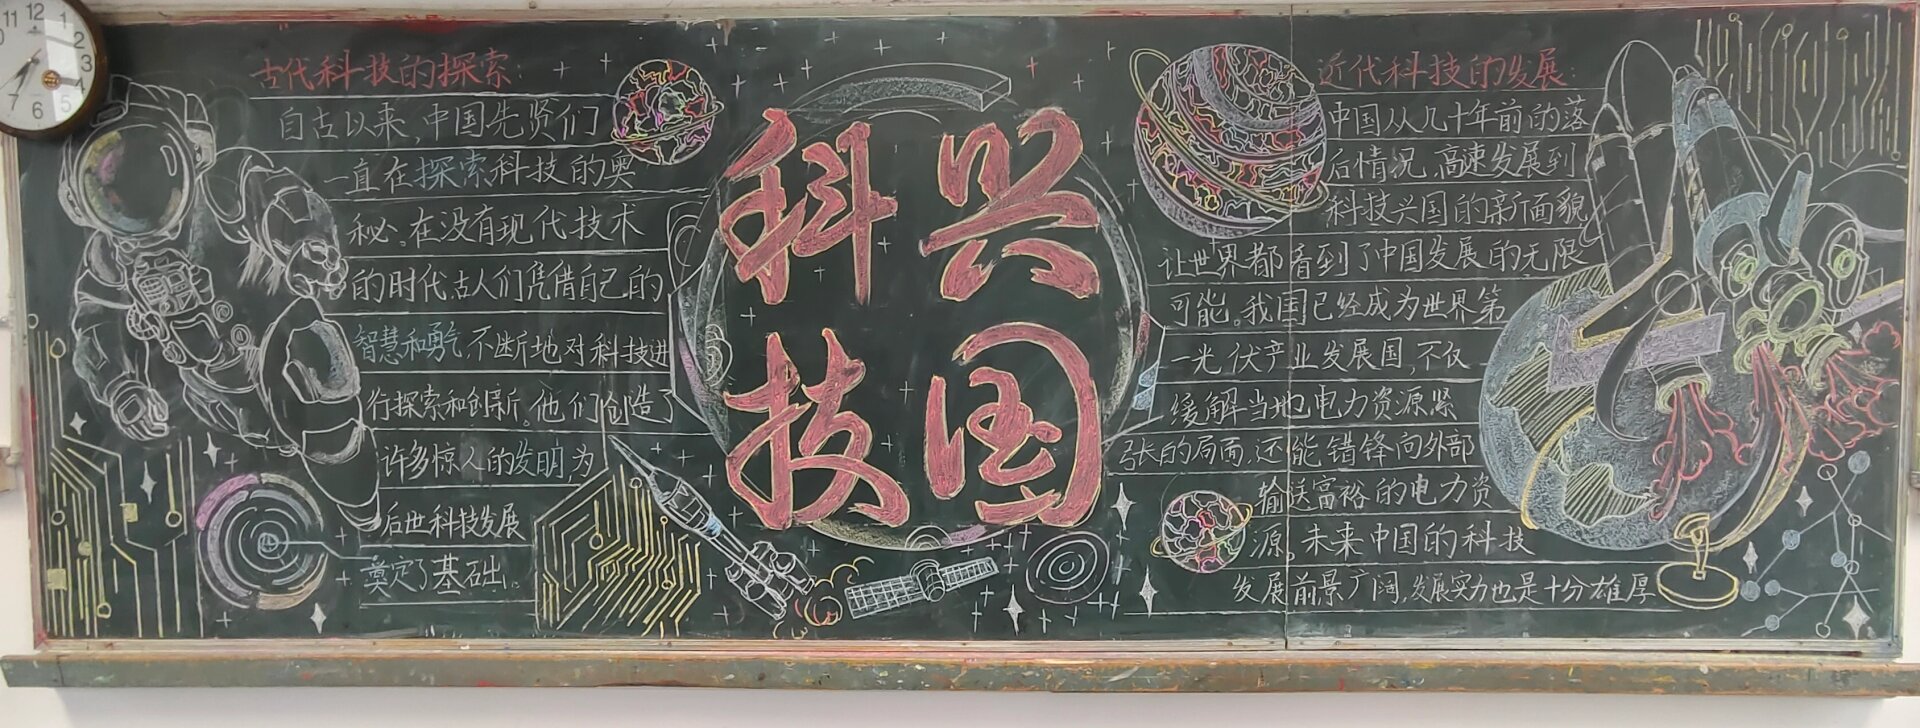 古代科技的探索：
自古以来，中国先贤们
一直在探索科技的奥
秘。在没有现代技术
的时代古人们凭借自己的
智慧和勇气，不断地对科技进
行探索和创新。他们创造了
许多惊人的发明，为
后世科技发展
奠定了基础。
科技
兴国
近代科技的发展：
中国从几十年前的落
后情况，高速发展到
科技兴国的新面貌
让世界都看到了中国发展的无限
可能。我国已经成为世界第
一光伏产业发展国，不仅
缓解当地电力资源紧
张的局面，还能错锋向外部
输送富裕的电力资
源。未来中国的科技
发展前景广阔，发展实力也是十分雄厚
11 12 1
2
3
4
5
6
7